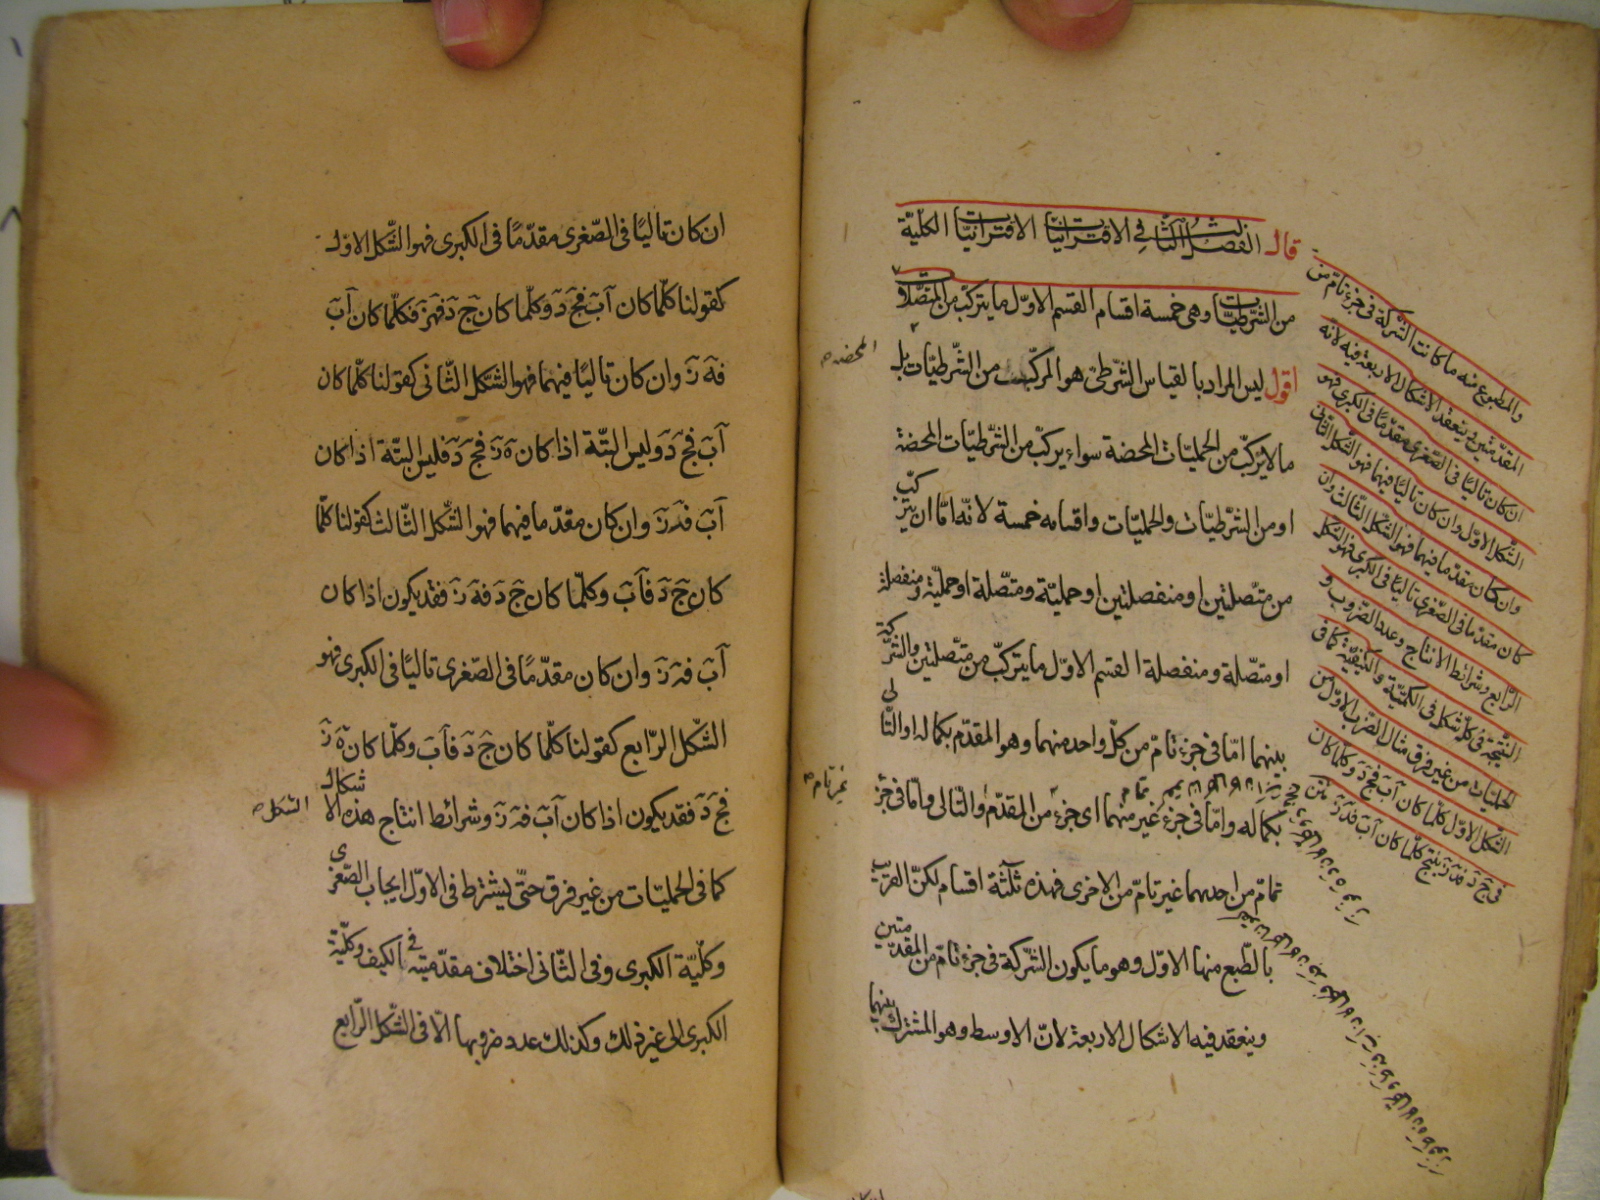 قال الفصل الثاني في الاقترانيات الاقترانيات الكلية
من الشرطيات وهي خمسة اقسام القسم الاول ما يتركب من المتصلات
اقول ليس المراد بالقياس الشرطي هو المركب من الشرطيات بل
المحضه
ما لا يتركب من الحمليات المحضة سواء يركب من الشرطيات المحضة
او من الشرطيات والحمليات واقسامه خمسة لانه اما ان يتركب
من متصلتين او منفصلتين او حملية ومتصلة او حملية ومنفصلة
او متصلة ومنفصلة القسم الاول ما يتركب من متصلتين والشركة
بينهما اما في جزء تام من كل واحد منهما وهو المقدم بكماله او التالي
بكماله واما في جزء غير منهما اى جزء من المقدم والتالي واما في جزء
غير تام
تمام
تام من احدهما غير تام من الاخرى فهذه ثلثة اقسام لكن القريب
بالطبع منها الاول وهو ما يكون الشركة في جزء تام من المقدمتين
وينعقد فيه الاشكال الاربعة لان الاوسط وهو المشترك بينهما
والمطبوع منه ما كانت الشركة في جزء تام من
المقدمتين وينعقد الاشكال الاربعة فيه لانه
ان كان تاليا في الصغرى مقدما في الكبرى فهو
الشكل الاول وان كان تاليا فيهما فهو الشكل الثانى
وان كان مقدما فيهما فهو الشكل الثالث وان
كان مقدما في الصغرى تاليا في الكبرى فهو الشكل
الرابع وشرائط الانتاج وعدد الضروب و
النتيجة في كل شكل في الكمية والكيفية كما في
الحمليات من غير فرق مثال الضرب الاول من
الشكل الاول كلما كان آب فج د وكلما كان
ج د فه ز ينتج كلما كان آب فه ز
ان كان تاليا في الصغرى مقدما في الكبرى فهو الشكل الاول
كقولنا كلما كان آب فج د وكلما كان ج د فه ز فكلما كان آب
فه ز وان كان تاليا فيهما فهو الشكل الثاني كقولنا كلما كان
آب فج د وليس البتة اذا كان ه ز فج د فليس البتة اذا كان
آب فه ز وان كان مقدما فيهما فهو الشكل الثالث كقولنا كلما
كان ج د فآب وكلما كان ج د فه ز فقد يكون اذا كان
آب فه ز وان كان مقدما في الصغرى تاليا في الكبرى فهو
الشكل الرابع كقولنا كلما كان ج د فآب وكلما كان ه ز
فج د فقد يكون اذا كان آب فه ز وشرائط انتاج هذه الاشكال
الشكل
كما في الحمليات من غير فرق حتى يشترط في الاول ايجاب الصغرى
وكلية الكبرى وفي الثاني اختلاف مقدمتيه في الكيف وكلية
الكبرى الى غير ذلك وكذلك عدد ضروبها الا في الشكل الرابع